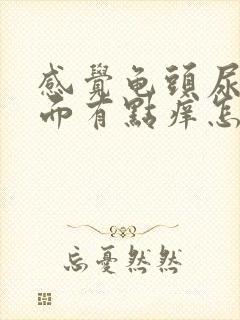 感覺龟頭尿
而有點痒怎
忘憂然然